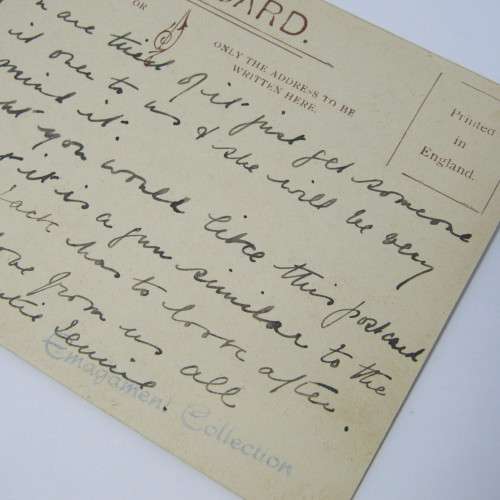 CARD.
OR
ONLY THE ADDRESS TO BE
WRITTEN HERE.
Printed
in
England.
are tired of it just get someone
it over to us & she will be very
mind it.
you would like this postcard
it is a gun similar to the
Jack has to look after.
love from us all
Jennie.
Emagament Collection